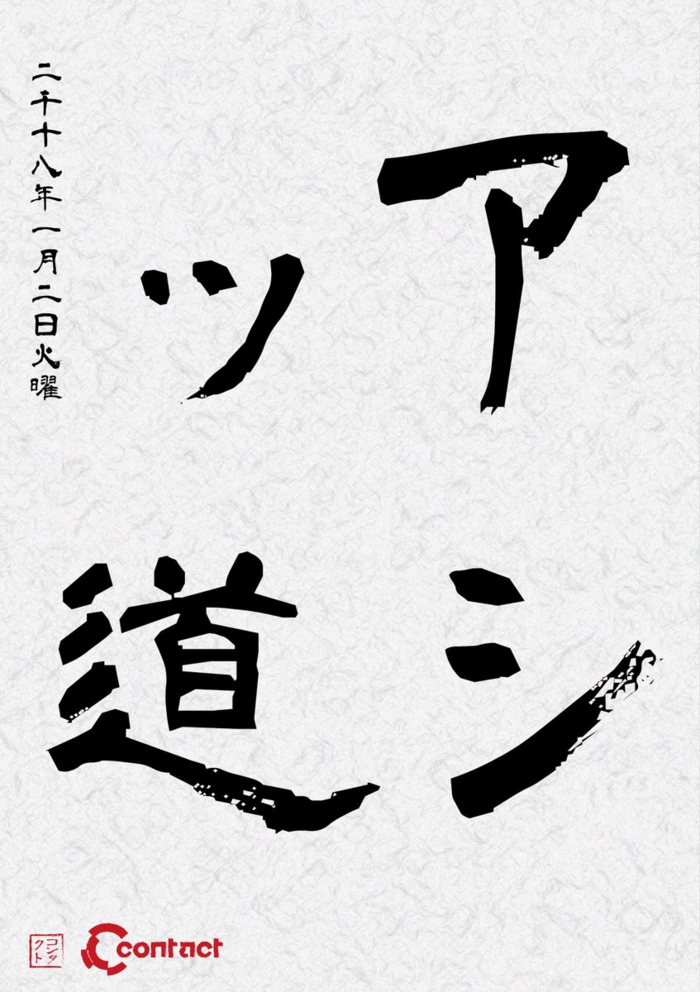 アシ
ッ道
二千十八年一月二日火曜
コンタ
クト
contact